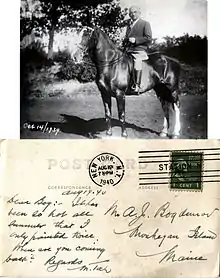 Oct 14/1939
POST CARD
CORRESPONDENCE
ADDRESS
NEW YORK, N.Y.
AUG 19
7 PM
1940
1 CENT 1
Aug 19, 40
Dear Boy:- It has
been so hot all
summer that I
only painted
When are you coming
back? Regards
Mr A.J.
Monhegan Island
Maine